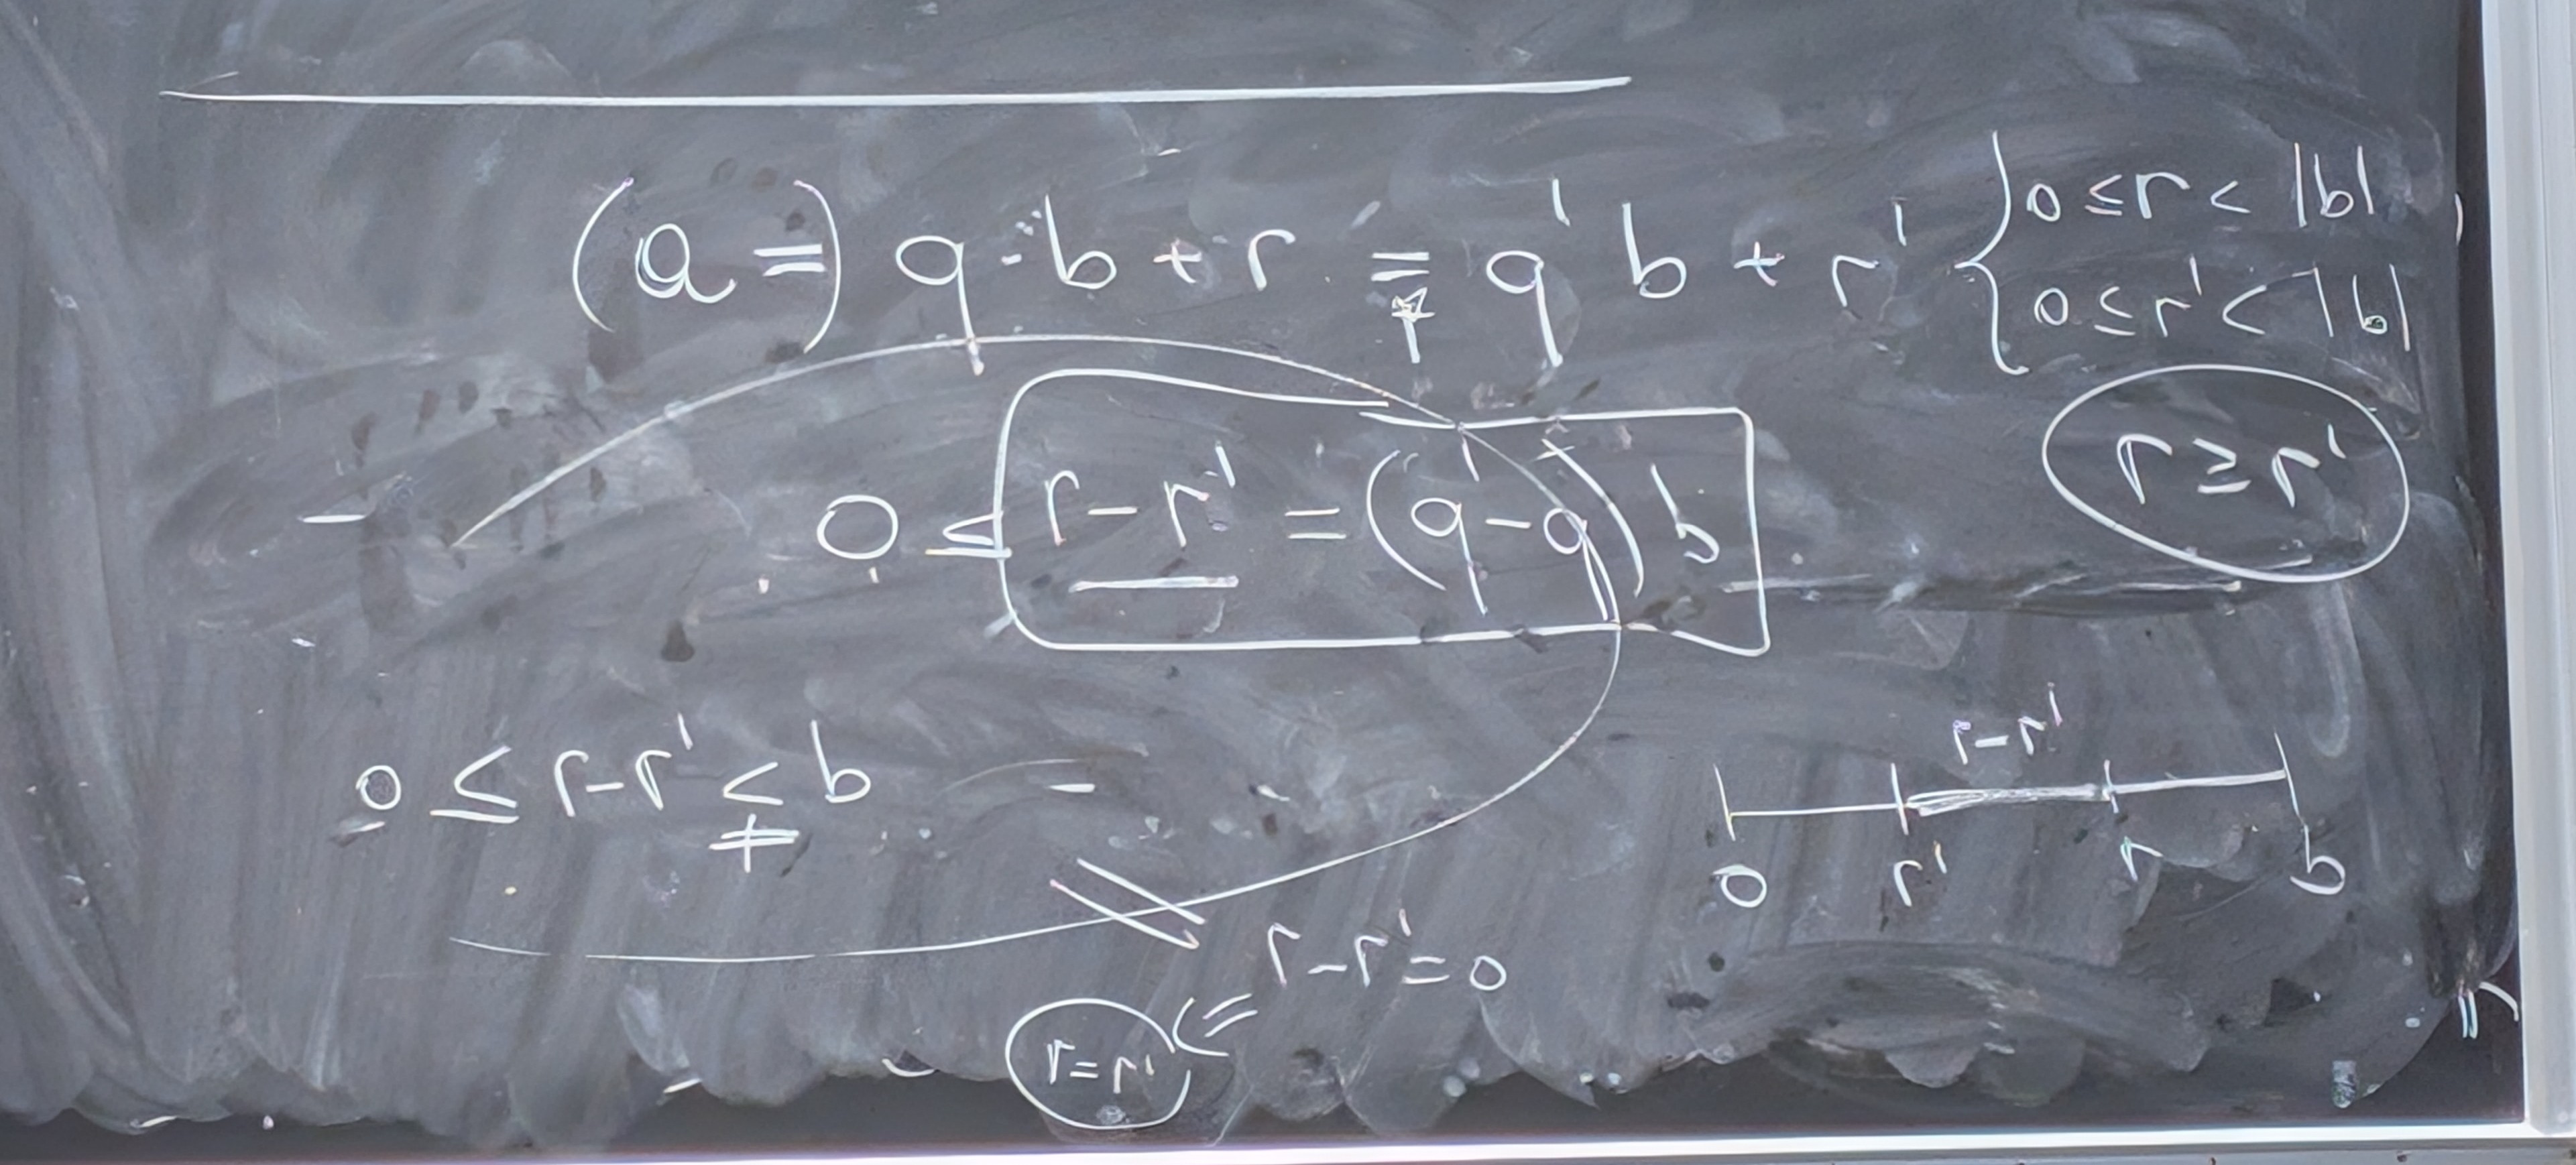 (a =) q · b + r = q' b + r' { 0 ≤ r < |b|
0 ≤ r' < |b|
r ≥ r'
0 ≤ r - r' = (q' - q) b
r - r'
0 ≤ r - r' ≨ b
0 r' r b
r - r' = 0
r = r' ⇐